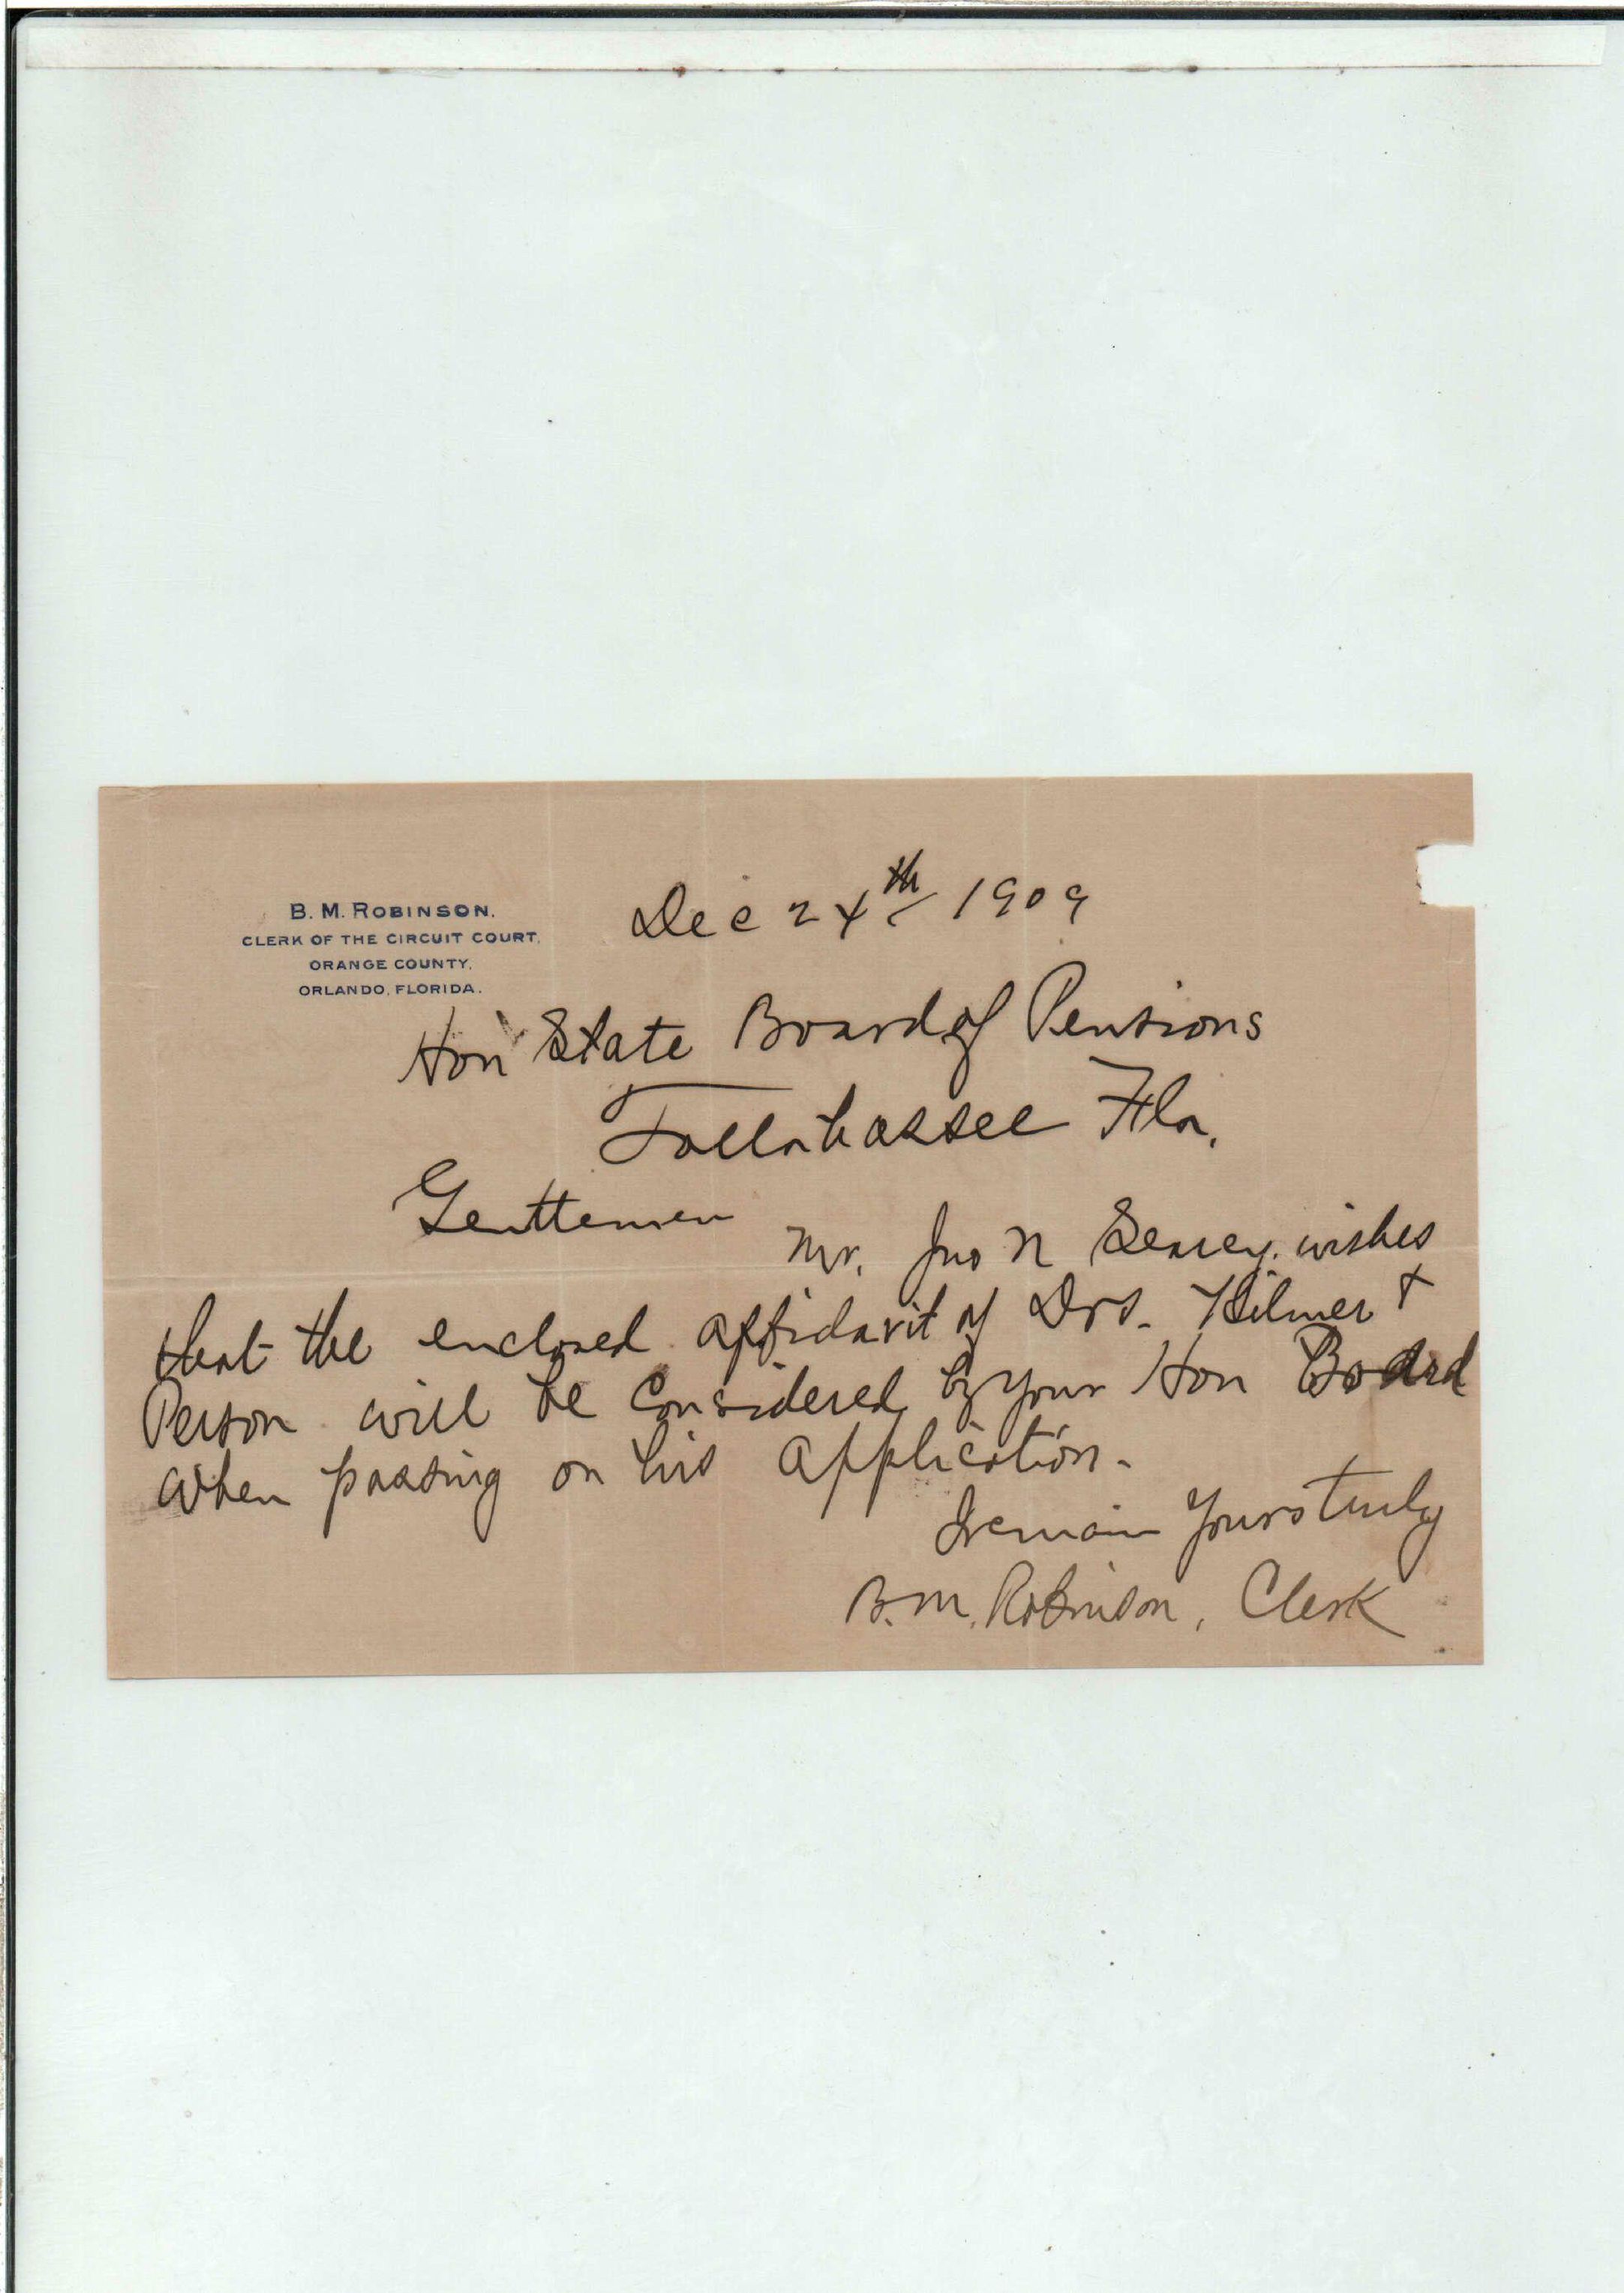 B. M. ROBINSON.
CLERK OF THE CIRCUIT COURT,
ORANGE COUNTY,
ORLANDO, FLORIDA.
Dec 24th 1909
Hon State Board of Pensions
Tallahassee Fla.
Gentlemen
Mr. Jno N Searcy. wishes
that the enclosed affidavit of Drs. Hilmer &
Person will be Considered by your Hon Board
when passing on his Application.
I remain Yours truly
B. M. Robinson, Clerk